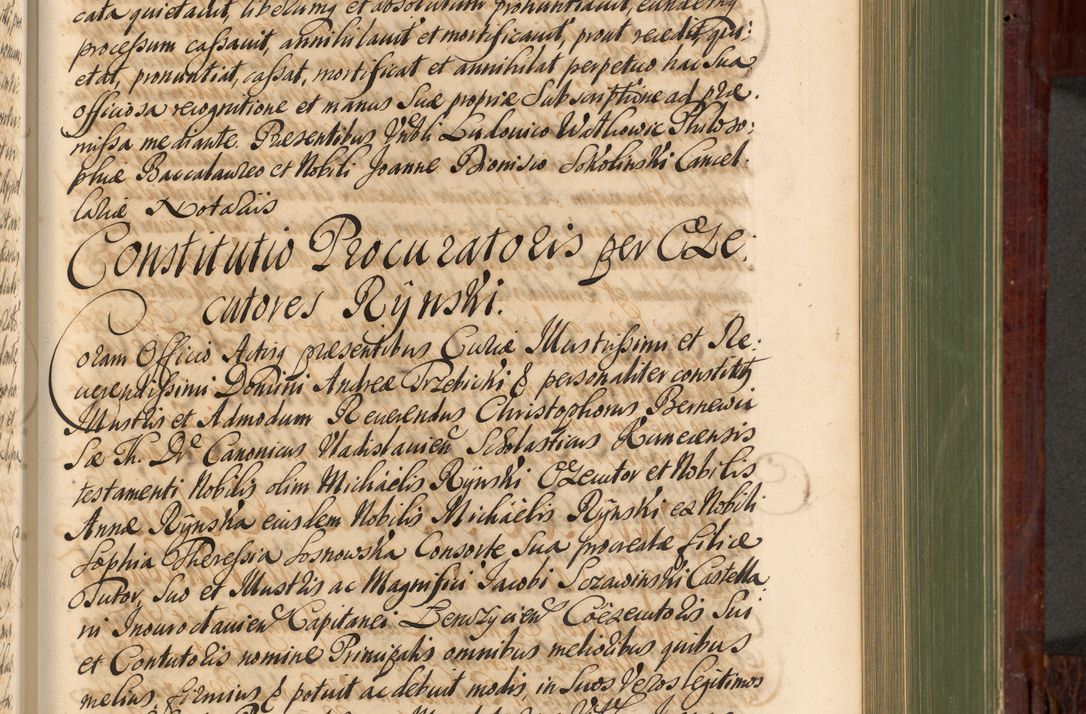 cata quietauit, liberumq et absolutum pronuntiauit, eundemq
processum cassauit, annihilauit et mortificauit, prout recedit, qui:
etat, pronuntiat, cassat, mortificat et annihilat perpetuo hac Sua
officiosa recognitione et manus Suæ propriæ Subscriptione ad præ:
missa mediante. Præsentibus Vrbli Ludouico Withowic Philoso:
phiæ Baccalaureo et Nobili Joanne Dionisio Sokolinski Cancel:
lariæ Notariis
Constitutio Procuratoris per Exe:
cutores Rÿnski.
Coram Officio Actisq præsentibus Curiæ Illustrissimi et Re:
uerendissimi Domini Andreæ Trzebicki & personaliter constitutq
Illustris et Admodum Reuerendus Christophorus Bernewic
Sæ Th. Dr Canonicus Vladislauien Scholasticus Runecensis
testamenti Nobilis olim Michaelis Rÿnski Executor et Nobilis
Annæ Rÿnska eiusdem Nobilis Michaelis Rÿnski ex Nobili
Sophia Theressia Sosnowska Consorte Sua procreatæ filiæ
Tutor, Suo et Illustris ac Magnifici Jacobi Szczawinski Castella
ni Inowroclauien Capitanei Lenczycien Coexecutoris Sui
et Contutoris nomine Principalis omnibus melioribus quibus
melius, firmius & potuit ac debuit modis, in Suos Veros legitimos